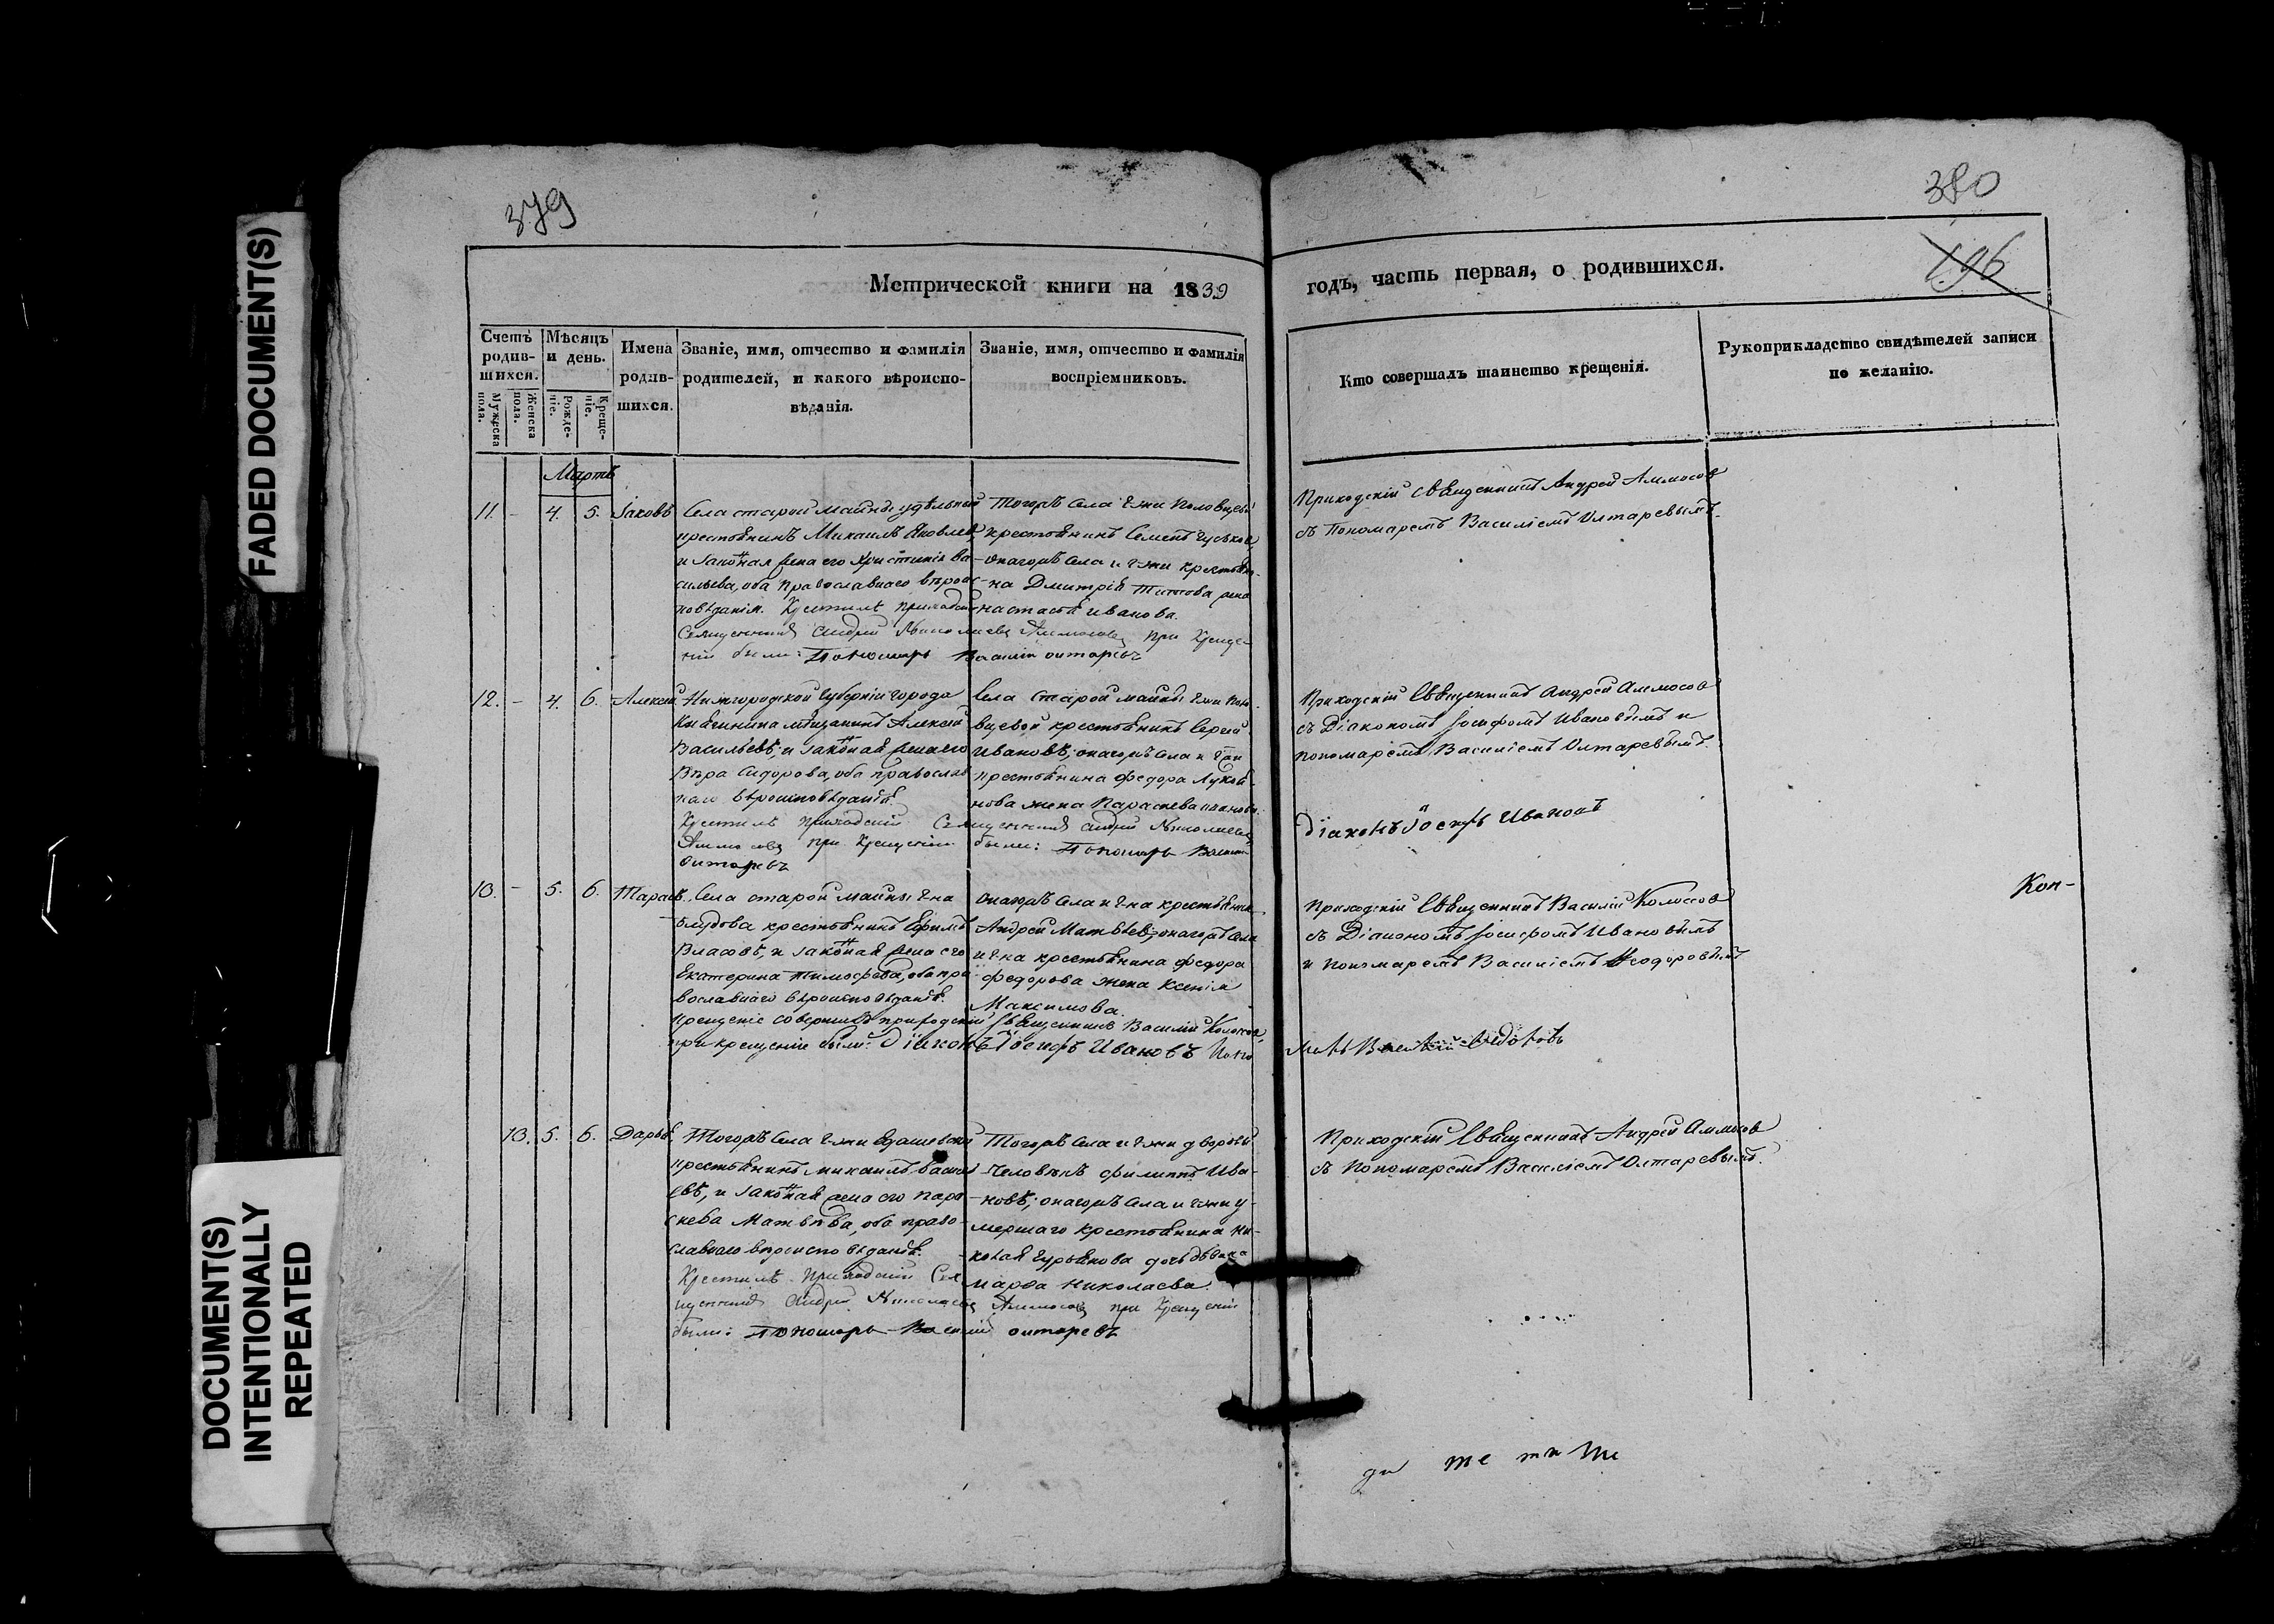 FADED DOCUMENT(S)
DOCUMENT(S)
INTENTIONALLY
REPEATED
379
380
196
Метрической книги на 1839
годъ, часть первая, о родившихся.
Счетъ родив-шихся.
Мужеска пола.
Женска пола.
Мѣсяцъ и день.
Рожде-ніе.
Креще-ніе.
Имена родив-шихся.
Званіе, имя, отчество и фамилія родителей, и какого вѣроиспо-вѣданія.
Званіе, имя, отчество и фамилія воспріемниковъ.
Кто совершалъ таинство крещенія.
Рукоприкладство свидѣтелей записи по желанію.
Мартъ
11. - 4. 5. Іаковъ
Села старой майны удѣльный
крестьянинъ Михаилъ Яковлевъ,
и законная жена его Христинія Ва-
сильева, оба православнаго вѣроис-
повѣданія. Крестилъ приходскій
Священникъ Андрей Аммосовъ при Креще-
ніи были: Пономарь Василій Олтаревъ
Тогожъ села Г-жи
крестьянинъ Семенъ Гуськов,
онагожъ села и Г-жи крестьяни-
на Дмитрія Титова жена
Настасья Иванова.
Приходскій Священникъ Андрей Аммосов
съ Пономаремъ Василіемъ Олтаревымъ.
12. - 4. 6. Алексій
Нижгородской Губерніи города
Княгинина мѣщанинъ Алексей
Васильевъ, и законная жена его
Вѣра Сидорова, оба православ-
наго вѣроисповѣданія.
Крестилъ приходскій Священникъ Андрей
Аммосовъ при Крещеніи были: Пономарь Василій
Олтаревъ
Села старой майны Г-жи
крестьянинъ Сергей
Ивановъ; онагожъ села и Г-жи
крестьянина Федора
жена Параскева
Приходскій Священникъ Андрей Аммосов
съ Діакономъ Іосифомъ Ивановымъ и
пономаремъ Василіемъ Олтаревымъ.
Діаконъ Іосифъ Ивановъ
13. - 5. 6. Тарасъ,
Села старой майны Г-на
крестьянинъ Ефимъ
Власовъ, и законная жена его
Екатерина Тимофеева, оба пра-
вославнаго вѣроисповѣданія.
Крещеніе совершилъ приходскій Священникъ Василій Колосов,
при крещеніи были: Діаконъ Іосифъ Ивановъ Поно
марь Василій Федотовъ
онагожъ села и Г-на крестьянин
Андрей Матвѣевъ; онагожъ села
и Г-на крестьянина Федора
Федорова жена Ксенія
Максимова.
Приходскій Священникъ Василій Колосов
съ Діакономъ Іосифомъ Ивановымъ
и Пономаремъ Василіемъ
Кон-
13. 5. 6. Дарья.
Тогожъ села Г-жи
крестьянинъ Михаилъ
евъ, и законная жена его Пара-
скева Матвѣева, оба право-
славнаго вѣроисповѣданія.
Крестилъ Приходскій Свя-
щенникъ Андрей Аммосовъ при Крещеніи
были: Пономарь Василій Олтаревъ
Тогожъ села и Г-жи дворовый
человѣкъ Филиппъ Ива-
новъ; онагожъ села и Г-жи у-
мершаго крестьянина Ни-
колая Гурьянова дочь дѣвица
Марфа Николаева.
Приходскій Священникъ Андрей Аммосов
съ Пономаремъ Василіемъ Олтаревымъ.